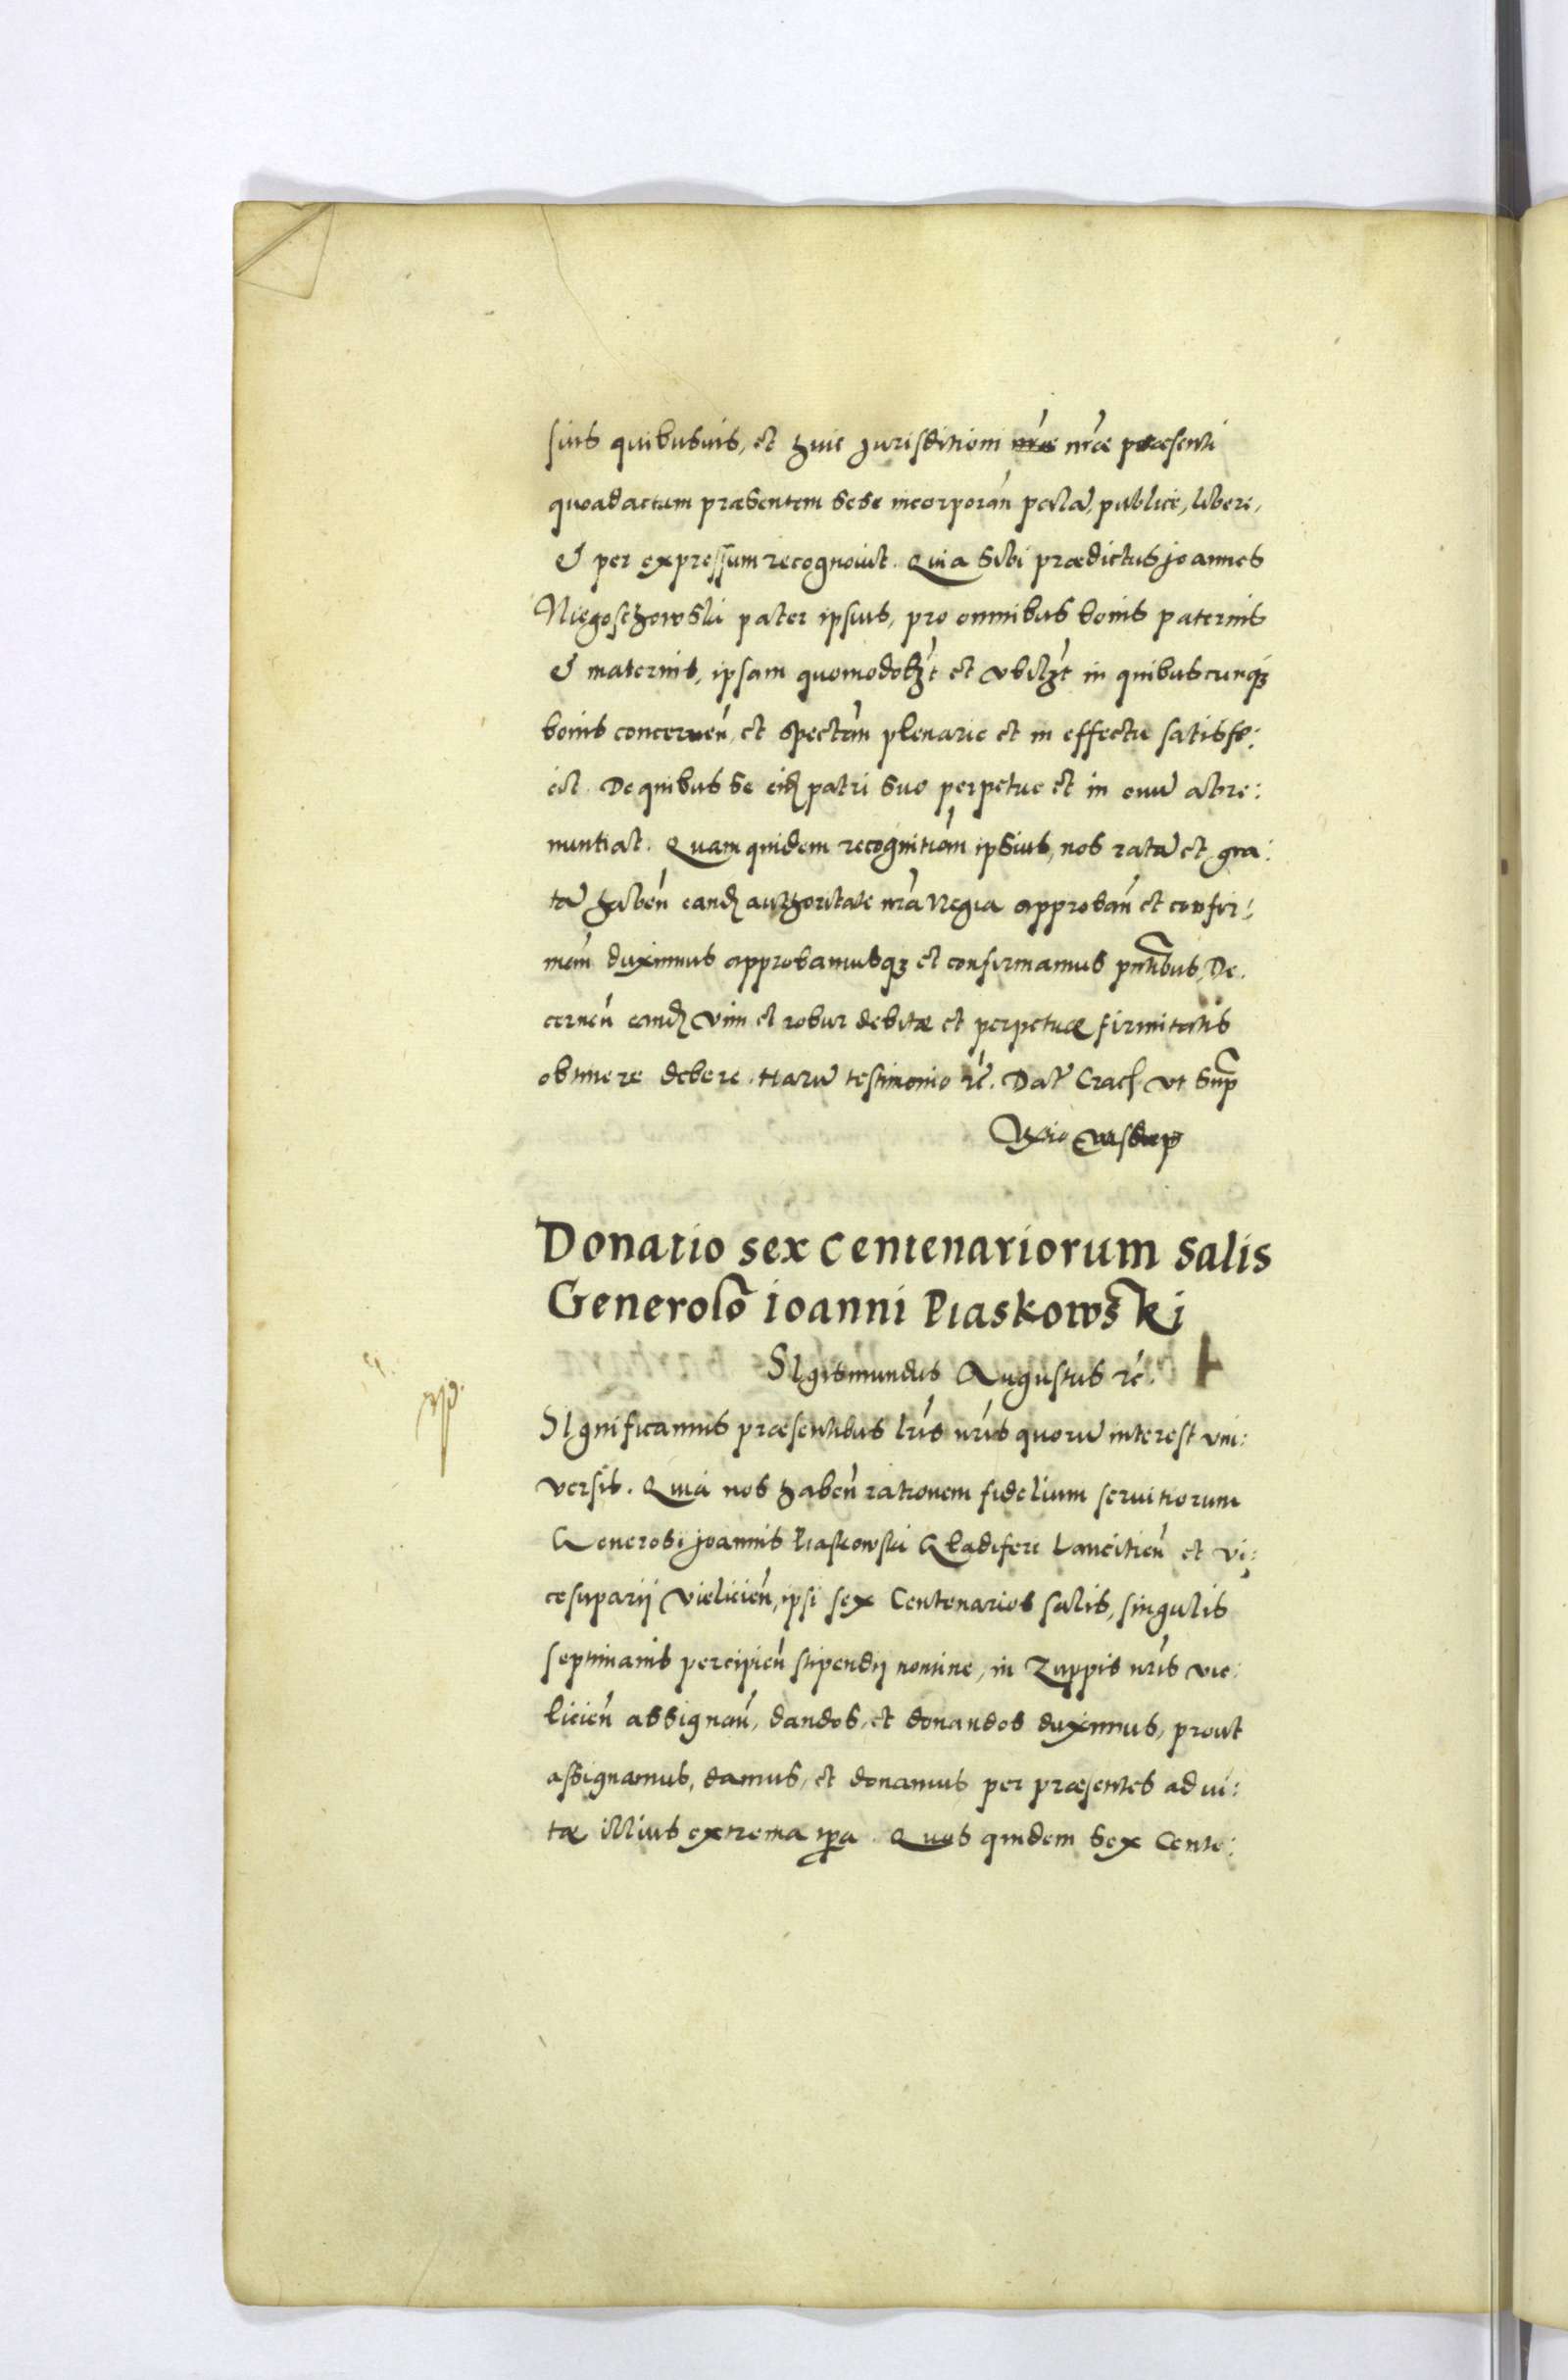 suis quibusuis, et huic Jurisditioni nrae nrae praesenti
quoad actum praesentem sese incorporan̄ palā, publice, libere,
& per expressum recognouit. Quia sibi praedictus Joannes
Niegoschowski pater ipsius, pro omnibus bonis paternis
& maternis, ipsam quomodolżt et vbilżt in quibuscunqz
bonis concernen̄, et spectan̄ plenarie et in effectu satisfe:
cit. De quibus se eid patri suo perpetuo et in euū abre:
nuntiat. Quam quidem recognition̄ ipsius, nos ratā et gra:
tā haben̄ eand authoritate nrā Regia approban̄ et confir:
man̄ duximus approbamusqz et confirmamus pntibus, De.
cernen̄ eand vim et robur debitae et perpetuae firmitatis
obtinere debere. Harū testimonio rc̄. Dat̄ Crac vt Sup
Donatio sex centenariorum salis
Generoso Ioanni Piaskowski
SIgismundus Augustus rc̄.
SIgnificamus praesentibus lris nris quorū interest vni:
versis. Quia nos haben̄ rationem fidelium seruitiorum
Generosi Joannis Piaskowski Gladiferi Lancitien̄ et vi:
cesuparij Vielicien̄, ipsi sex Centenarios salis, singulis
septimanis percipien̄ stipendij nomine, in Zuppis nris vie:
licien̄ assignan̄, dandos, et donandos duximus, prout
assignamus, damus, et donamus per praesentes ad vi:
tae illius extrema tpa. Quos quidem sex Cente: